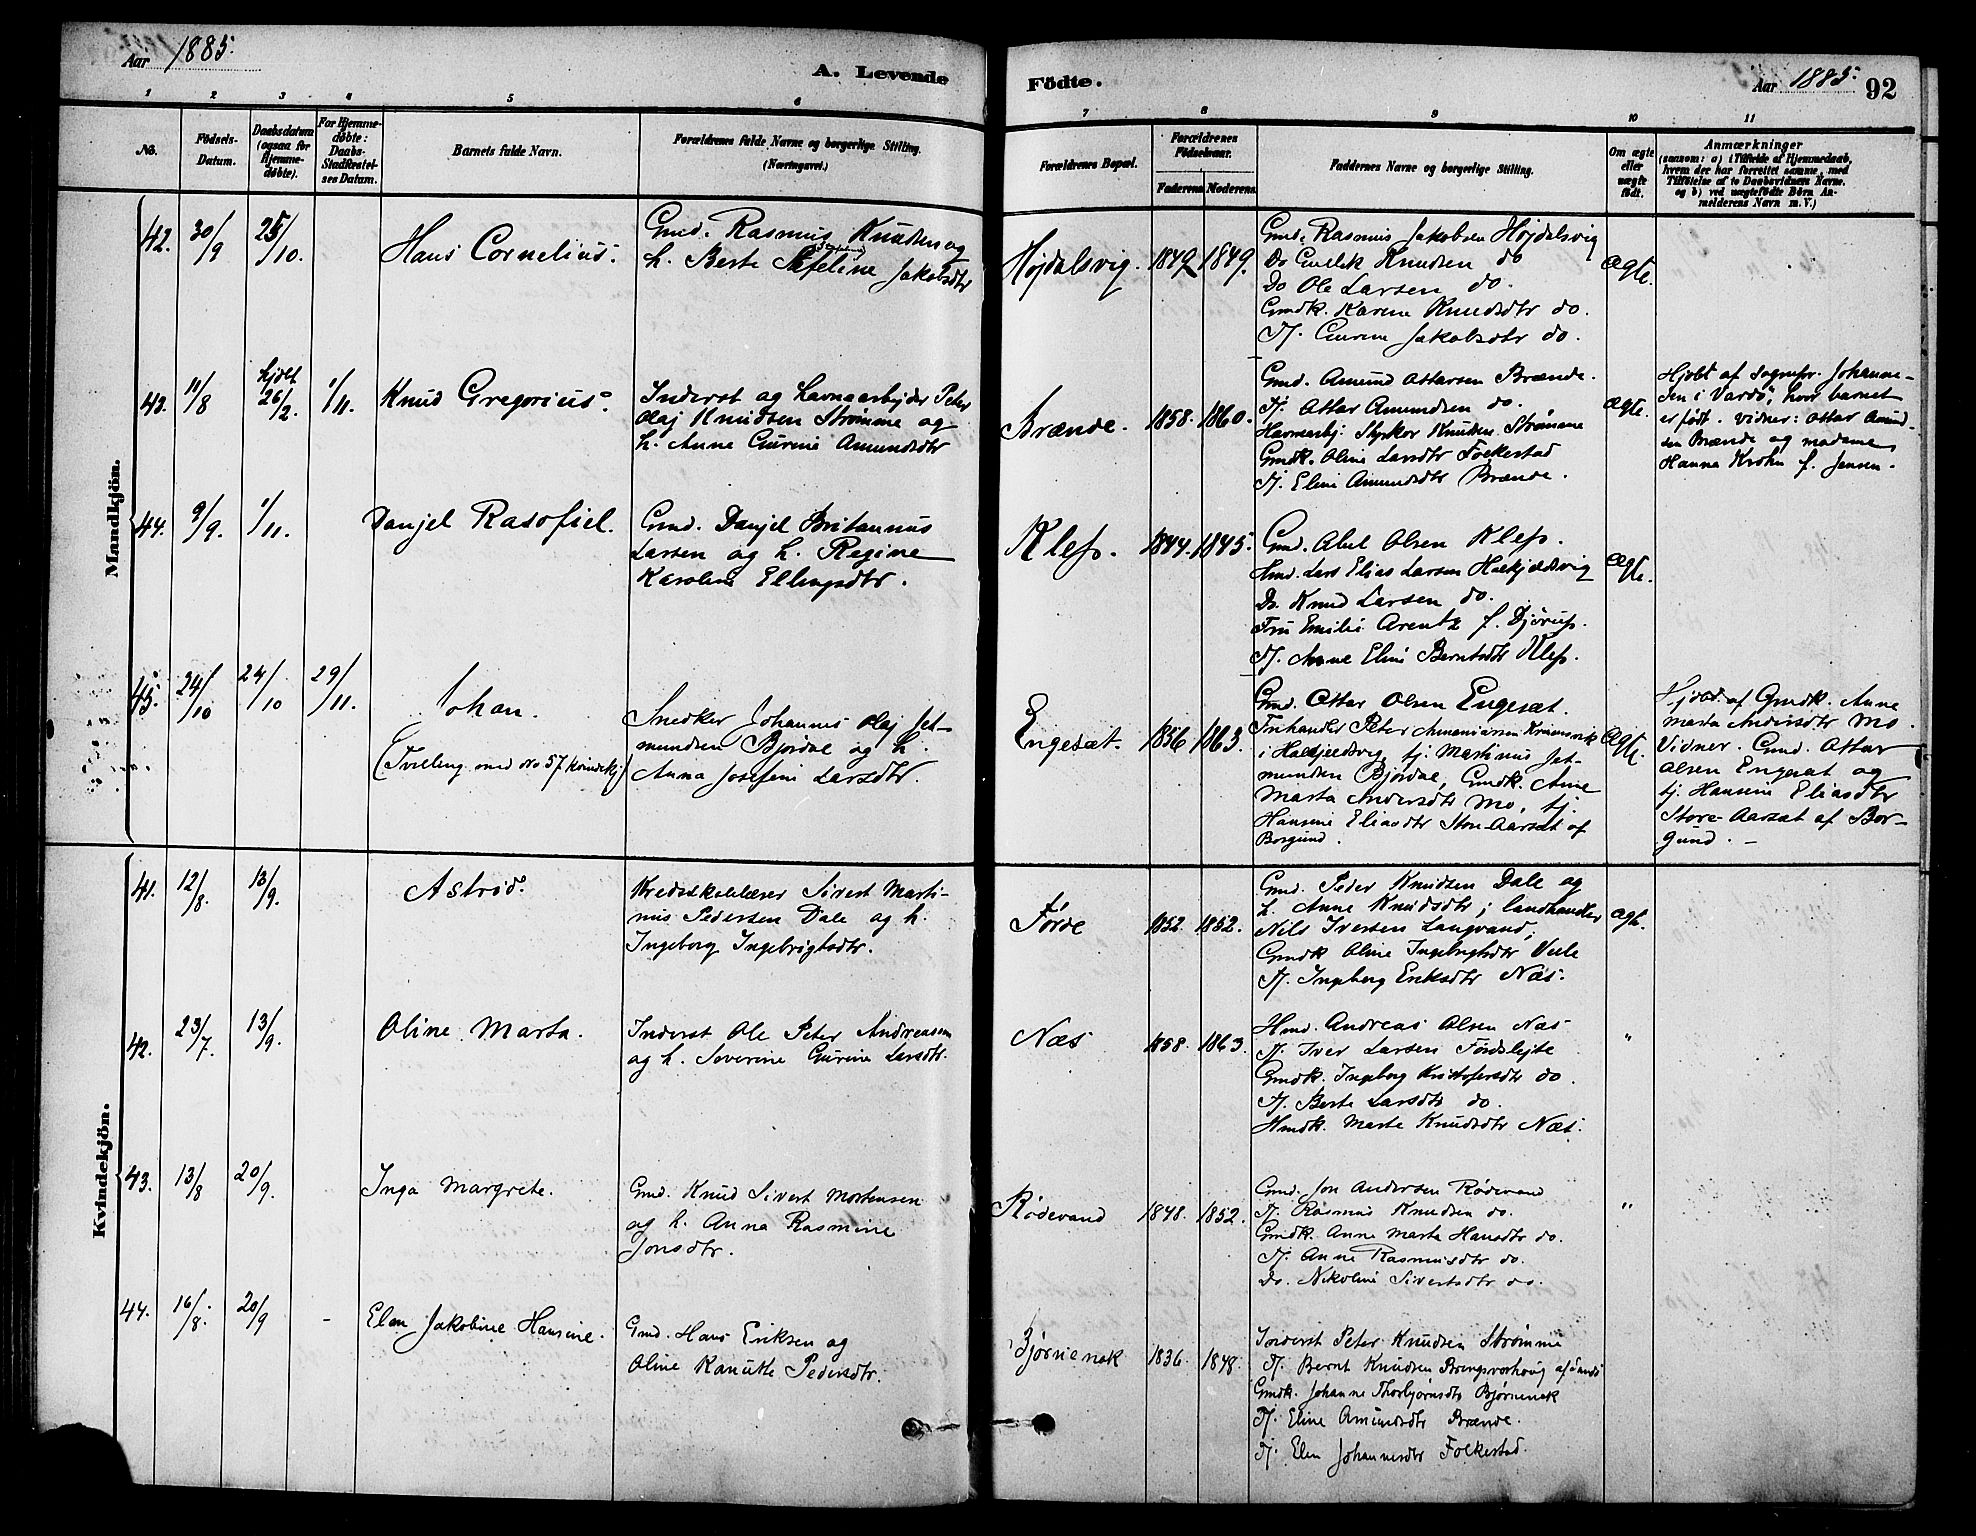 Aar 1885.
A. Levende
Födte.
Aar 1885.
92
1 2 3 4 5 6 7 8 9 10 11
No.
Födsels-
Datum.
Daabsdatum
(ogsaa for
Hjemme-
döbte).
For Hjemme-
döbte:
Daabs-
Stadfæstel-
ses Datum.
Barnets fulde Navn.
Forældrenes fulde Navne og borgerlige Stilling.
(Næringsvei.)
Forældrenes Bopæl.
Forældrenes
Födselsaar.
Faderens Moderens
Faddernes Navne og borgerlige Stilling.
Om ægte
eller
uægte
födt.
Anmærkninger
(saasom: a) i Tilfælde af Hjemmedaab,
hvem der har forrettet samme, med
Tilföielse af to Daabsvidners Navne.
og b) ved uægtefödte Börn An-
melderens Navn m. V.)
Mandkjön.
42. 30/9 25/10. Hans Cornelius.
Gmd. Rasmus Knudsen og
h. Berte Jakobsdtr
Højdalsvig. 1849 1849.
Gmd. Rasmus Jakobsen Højdalsvig
Do Knudsen do
Do Ole Larsen do.
Gmdk. Karine Knudsdtr do.
Pj. Gurine Jakobsdtr do.
Ægte.
43. 11/8 hjdbt 26/2. 1/11. Knud Gregorius.
Inderst og havnearbejder Peter
Olaj Knudsen Strømme og
h. Anne Gurine Amundsdtr
Brænde. 1858. 1860.
Gmd. Amund Ottarsen Brænde.
Pj. Ottar Amundsen do.
Havnearbj. Styrkor Knudsen Strømme
Gmdk. Oline Larsdtr Folkestad
Pj. Eline Amundsdtr Brænde.
Ægte.
Hjdbt af Sognepr. Johanne-
sen i Vardö, hvor barnet
er født. Vidner: Ottar Amund-
sen Brænde og madame
Hanna Krohn f. Jensen.
44. 9/9. 1/11. Danjel Rasofiel.
Gmd. Danjel Britannus
Larsen og h. Regine
Karoline Ellingsdtr.
Klep. 1844. 1845.
Gmd. Abel Olsen Klep.
Hmd. Lars Elias Larsen Halkjeldsvig
Do. Knud Larsen do.
Fru Emilie Arentz f. Djørup.
Pj. Anne Eline Berntsdtr Klep.
Ægte.
45. 24/10 24/10 29/11. Johan.
(Tvilling med No 57 Kvindekj)
Snedker Johannes Olaj Jet-
mundsen Bjørdal og h.
Anna Josefine Larsdtr.
Engesæt. 1856. 1863.
Gmd. Ottar Olsen Engesæt.
Peter
i Halkjeldsvig, tj. Martinus Jet-
mundsen Bjørdal, Gmdk. Anne
Marta Andersdtr Mo, tj.
Hansine Eliasdtr Store-Aarsæt af
Borgund.
Ægte.
Hjdbt af Gmdk. Anne
Marta Andersdtr Mo.
Vidner. Gmd. Ottar
Olsen Engesæt og
tj. Hansine Eliasdtr
Store-Aarsæt af Bor-
gund. –
Kvindekjön.
41. 12/8. 13/9. Astrid.
Kredsskolelærer Sivert Marti-
nus Pedersen Dale og h.
Ingeborg Ingebrigtsdtr.
Førde 1852. 1852.
Gmd. Peder Knudsen Dale og
h. Anne Knudsdtr; landhandler
Nils Iversen Langvand,
Gmdk Oline Ingebrigtsdtr Velle
Pj. Ingeborg Eriksdtr Næs.
Ægte.
42. 23/7. 13/9. Oline Marta.
Inderst Ole Peter Andreassen
og h. Severine Gurine Larsdtr.
Næs 1858. 1863.
Hmd. Andreas Olsen Næs
Pj. Iver Larsen Førdslejte
Gmdk. Ingeborg Kristofersdtr do.
Pj. Berte Larsdtr do.
Hmdk. Marte Knudsdtr Næs.
"
43. 13/8 20/9. Inga Margrete.
Gmd. Knud Sivert Mortensen
og h. Anna Rasmine
Jonsdtr.
Rødevand 1848. 1852.
Gmd. Jon Andersen Rødevand
Pj. Rasmus Knudsen do.
Gmdk. Anne Marta Hansdtr do.
Pj. Anne Rasmusdtr do.
Do. Nikoline Sivertsdtr do.
"
44. 16/8. 20/9 – Elen Jakobine Hansine.
Gmd. Hans Eriksen og
Oline Kanutte Pedersdtr.
Bjørnenak 1836. 1848.
Inderst Peter Knudsen Strømme
Pj. Bernt Knudsen af
Gmdk. Johanne Thorbjørnsdtr Bjørnenak
Pj. Eline Amundsdtr Brænde.
Pj. Elen Johannesdtr Folkestad.